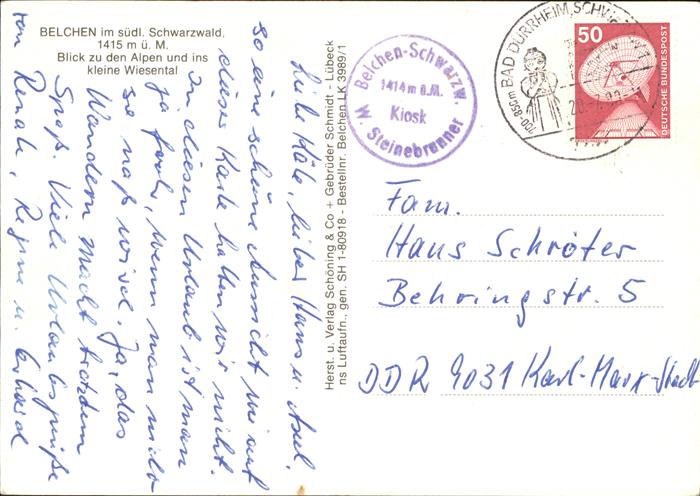 BELCHEN im südl. Schwarzwald,
1415 m ü. M.
Blick zu den Alpen und ins
kleine Wiesental
Liebe Käte, lieber Hans u. Axel,
so eine schöne Aussicht wie auf
dieser Karte hatten wir nicht.
In diesem Urlaub ist man
ja froh, wenn man nicht
so naß wird. Ja, das
Wandern macht trotzdem
Spaß. Viele Urlaubsgrüße
von Renate, Regine u. Gerhard
Herst. u. Verlag Schöning & Co + Gebrüder Schmidt - Lübeck
ns Luftaufn., gen. SH 1-80918 - Bestellnr. Belchen LK 3989/1
Belchen-Schwarzw.
1414 m ü.M.
Kiosk
W. Steinebrunner
700-850m BAD DÜRRHEIM, SCHW
50
DEUTSCHE BUNDESPOST
Fam.
Hans Schröter
Behringstr. 5
DDR 9031 Karl-Marx-Stadt